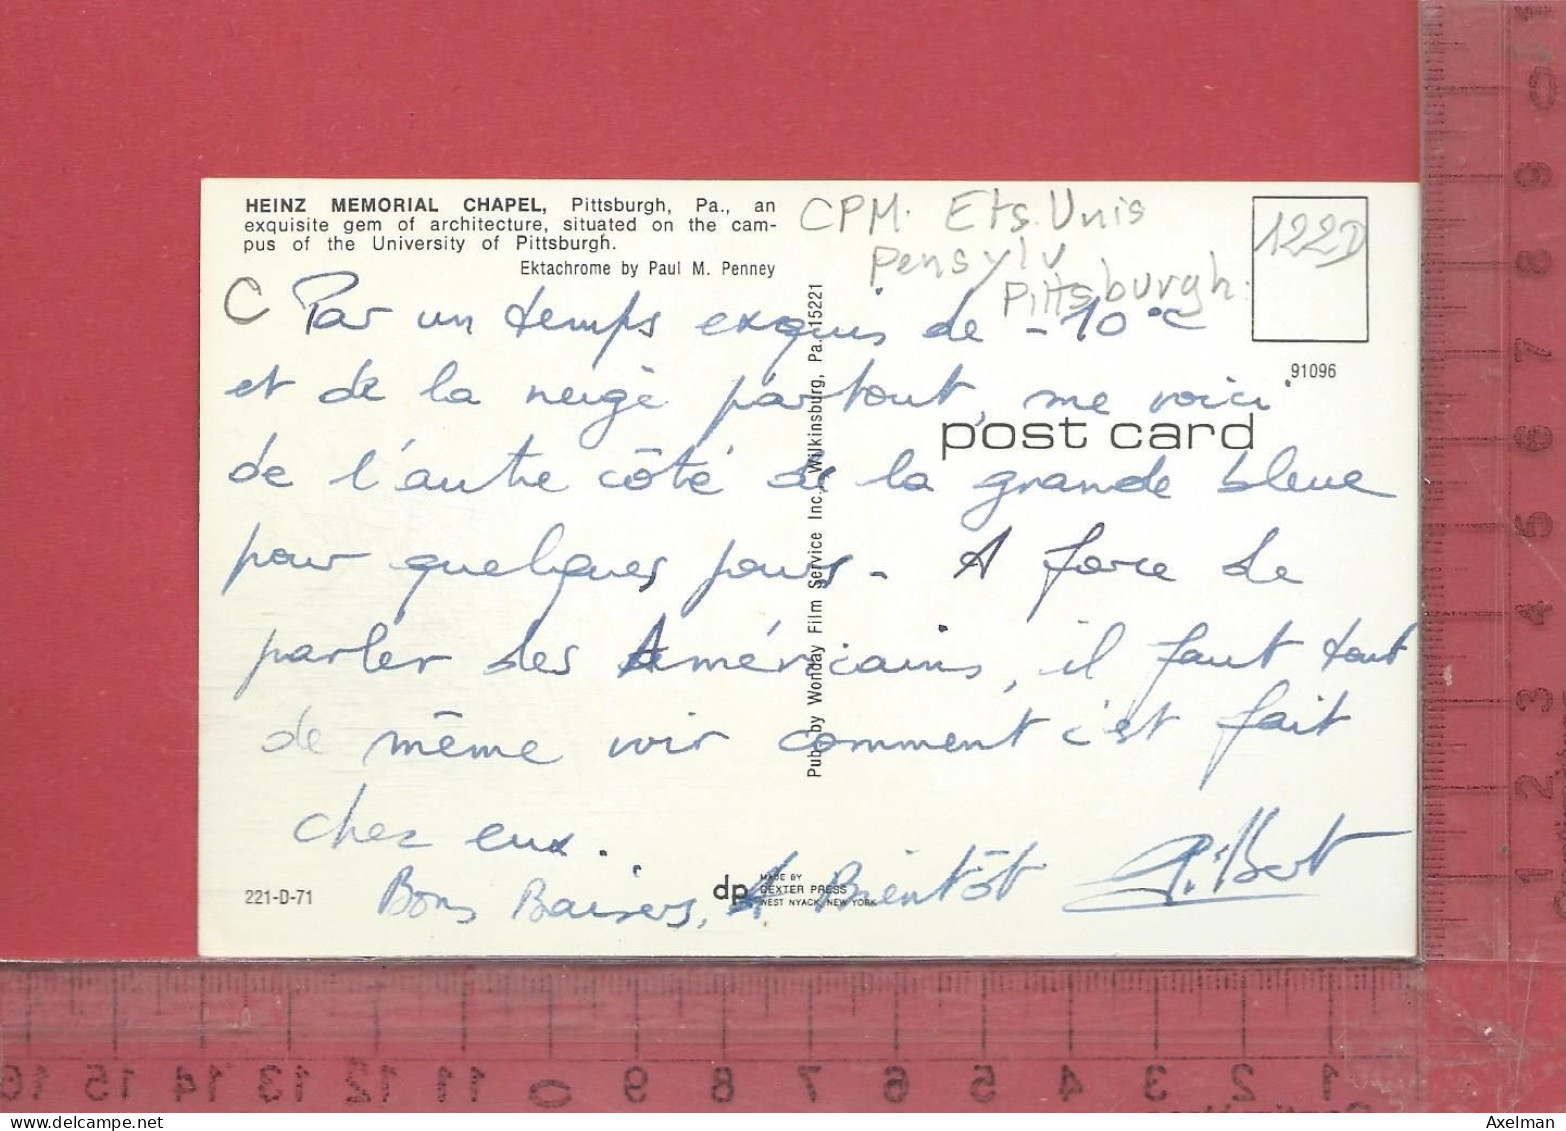 HEINZ MEMORIAL CHAPEL, Pittsburgh, Pa., an
exquisite gem of architecture, situated on the cam-
pus of the University of Pittsburgh.
Ektachrome by Paul M. Penney
CPM. Ets. Unis
Pensylv
Pittsburgh.
122D
91096
post card
Pub. by Wonday Film Service Inc., Wilkinsburg, Pa. 15221
C
Par un temps exquis de -10°C
et de la neige partout, me voici
de l'autre côté de la grande bleue
pour quelques jours - A force de
parler des Américains, il faut tout
de même voir comment c'est fait
chez eux.
Bons Baisers, A Bientôt Gilbert
221-D-71
dp
MADE BY
DEXTER PRESS
WEST NYACK, NEW YORK
1 0 9 8 7 6 5 4 3 2 1
16 15 14 13 12 11 0 9 8 7 6 5 4 3 2 1
Axelman